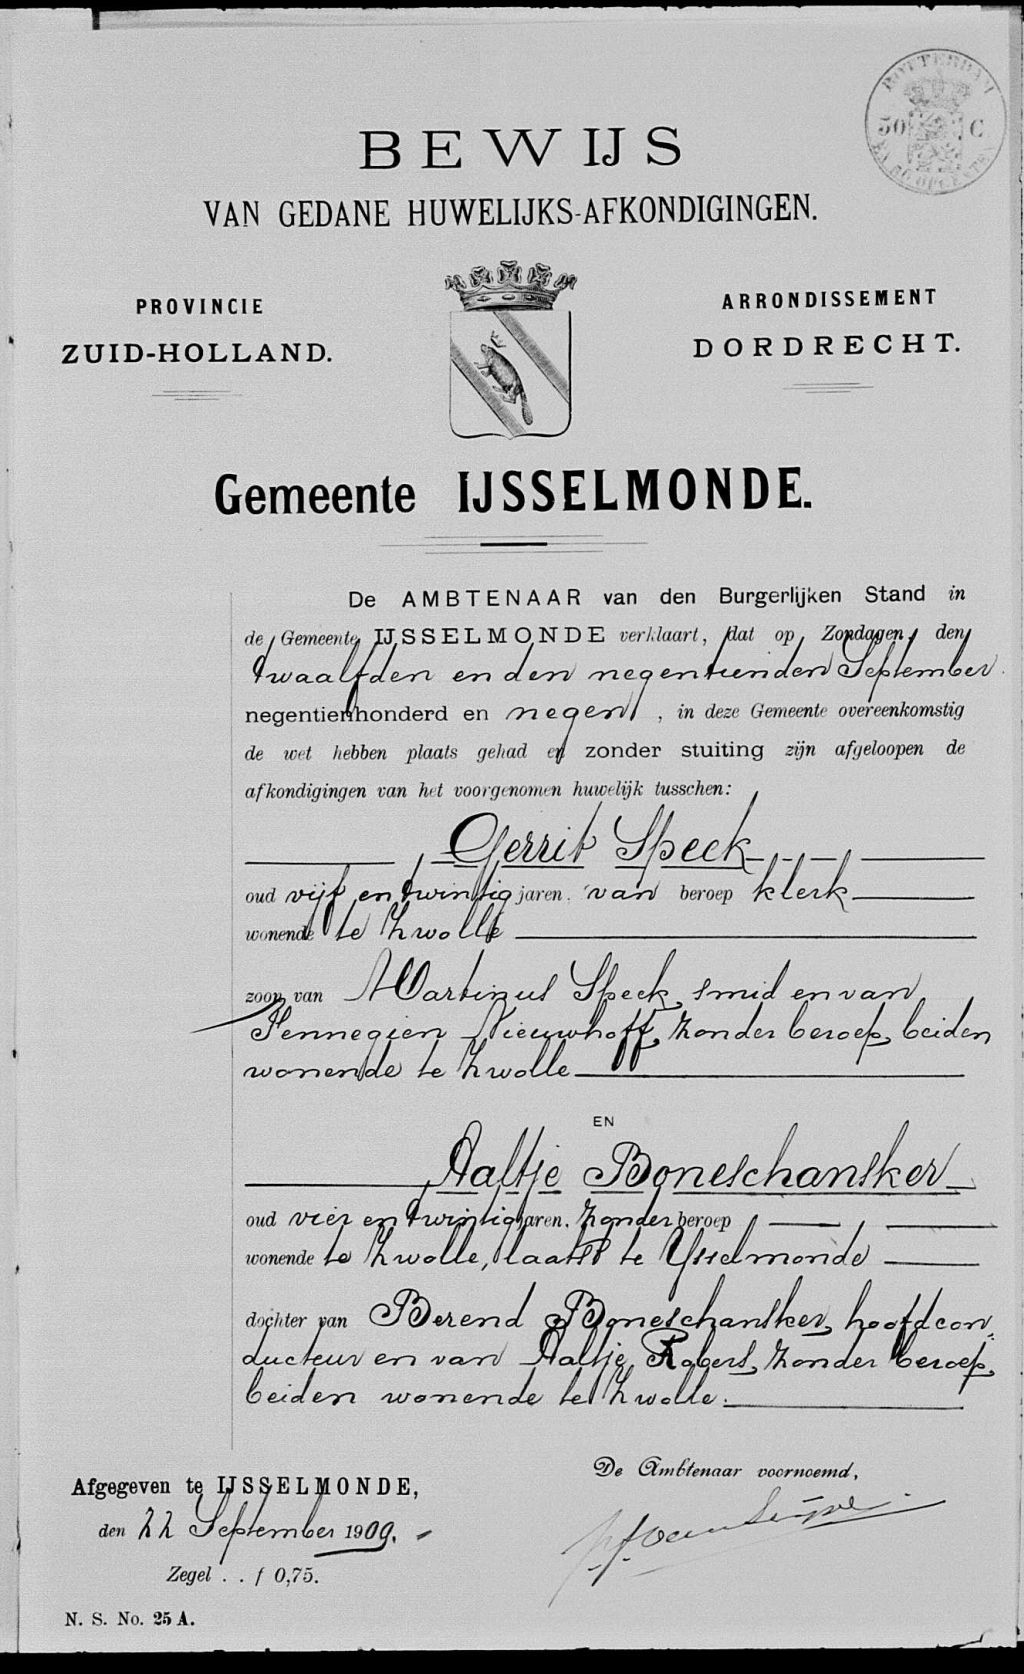 BEWIJS
VAN GEDANE HUWELIJKS-AFKONDIGINGEN.
ROTTERDAM
50 C
PROVINCIE
ZUID-HOLLAND.
ARRONDISSEMENT
DORDRECHT.
Gemeente IJSSELMONDE.
De AMBTENAAR van den Burgerlijken Stand in
de Gemeente IJSSELMONDE verklaart, dat op Zondagen, den
twaalfden en den negentienden September
negentienhonderd en negen, in deze Gemeente overeenkomstig
de wet hebben plaats gehad en zonder stuiting zijn afgeloopen de
afkondigingen van het voorgenomen huwelijk tusschen:
Gerrit Speek
oud vijf en twintig jaren, van beroep klerk
wonende te Zwolle
zoon van Martinus Speek, smid en van
Jennegien Nieuwhoff, zonder beroep, beiden
wonende te Zwolle
EN
Aaltje Boneschansker
oud vier en twintig jaren, zonder beroep
wonende te Zwolle, laatst te IJsselmonde
dochter van Berend Boneschansker, hoofdcon-
ducteur en van Aaltje Robers, zonder beroep,
beiden wonende te Zwolle.
Afgegeven te IJSSELMONDE,
den 22 September 1909.
Zegel . . f 0,75.
N. S. No. 25 A.
De Ambtenaar voornoemd,